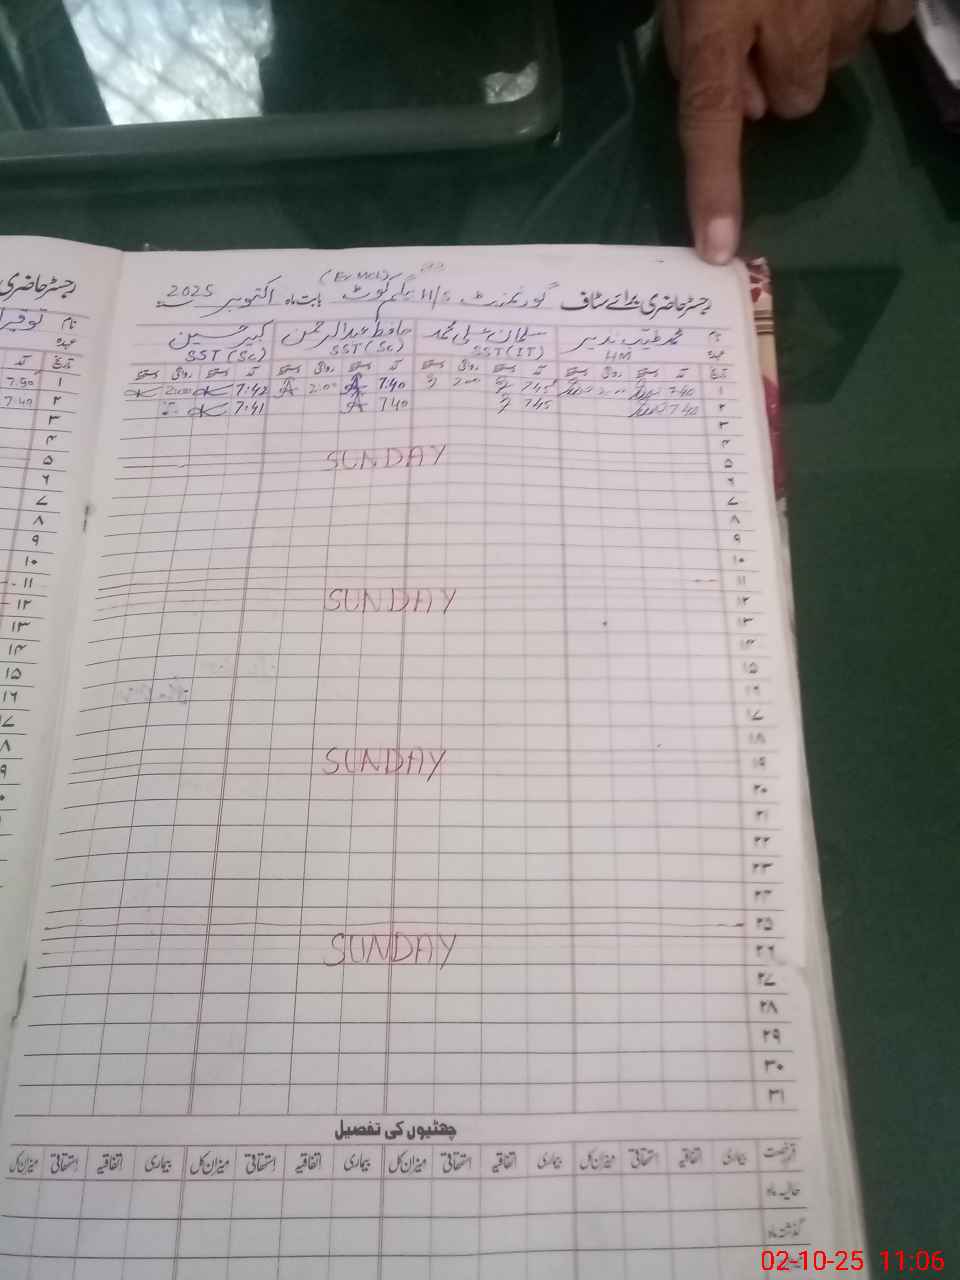 رجسٹر حاضری برائے سٹاف گورنمنٹ H/S بیگم کوٹ (Ex MCL) بابت ماہ اکتوبر 2025
نام محمد طیب نذیر سلمان علی محمد حافظ عبدالرحمن کبیر حسین
عہدہ HM SST (IT) SST (Sc) SST (Sc)
تاریخ آمد دستخط روانگی دستخط آمد دستخط روانگی دستخط آمد دستخط روانگی دستخط آمد دستخط روانگی دستخط
۱ 7:40 2:00 7:45 2:00 7:40 2:00 7:42 2:00
۲ 7:40 7:45 7:40 7:41
۳
۴
۵ SUNDAY
۶
۷
۸
۹
۱۰
۱۱
۱۲ SUNDAY
۱۳
۱۴
۱۵
۱۶
۱۷
۱۸
۱۹ SUNDAY
۲۰
۲۱
۲۲
۲۳
۲۴
۲۵
۲۶ SUNDAY
۲۷
۲۸
۲۹
۳۰
۳۱
چھٹیوں کی تفصیل
قسم رخصت بیماری اتفاقیہ استحقاقی میزان کل بیماری اتفاقیہ استحقاقی میزان کل بیماری اتفاقیہ استحقاقی میزان کل بیماری اتفاقیہ استحقاقی میزان کل
حالیہ ماہ
گذشتہ ماہ
رجسٹر حاضری
نام
عہدہ
تاریخ آمد
۱ 7:40
۲ 7:40
۳
۴
۵
۶
۷
۸
۹
۱۰
۱۱
۱۲
۱۳
۱۴
۱۵
۱۶
02-10-25 11:06